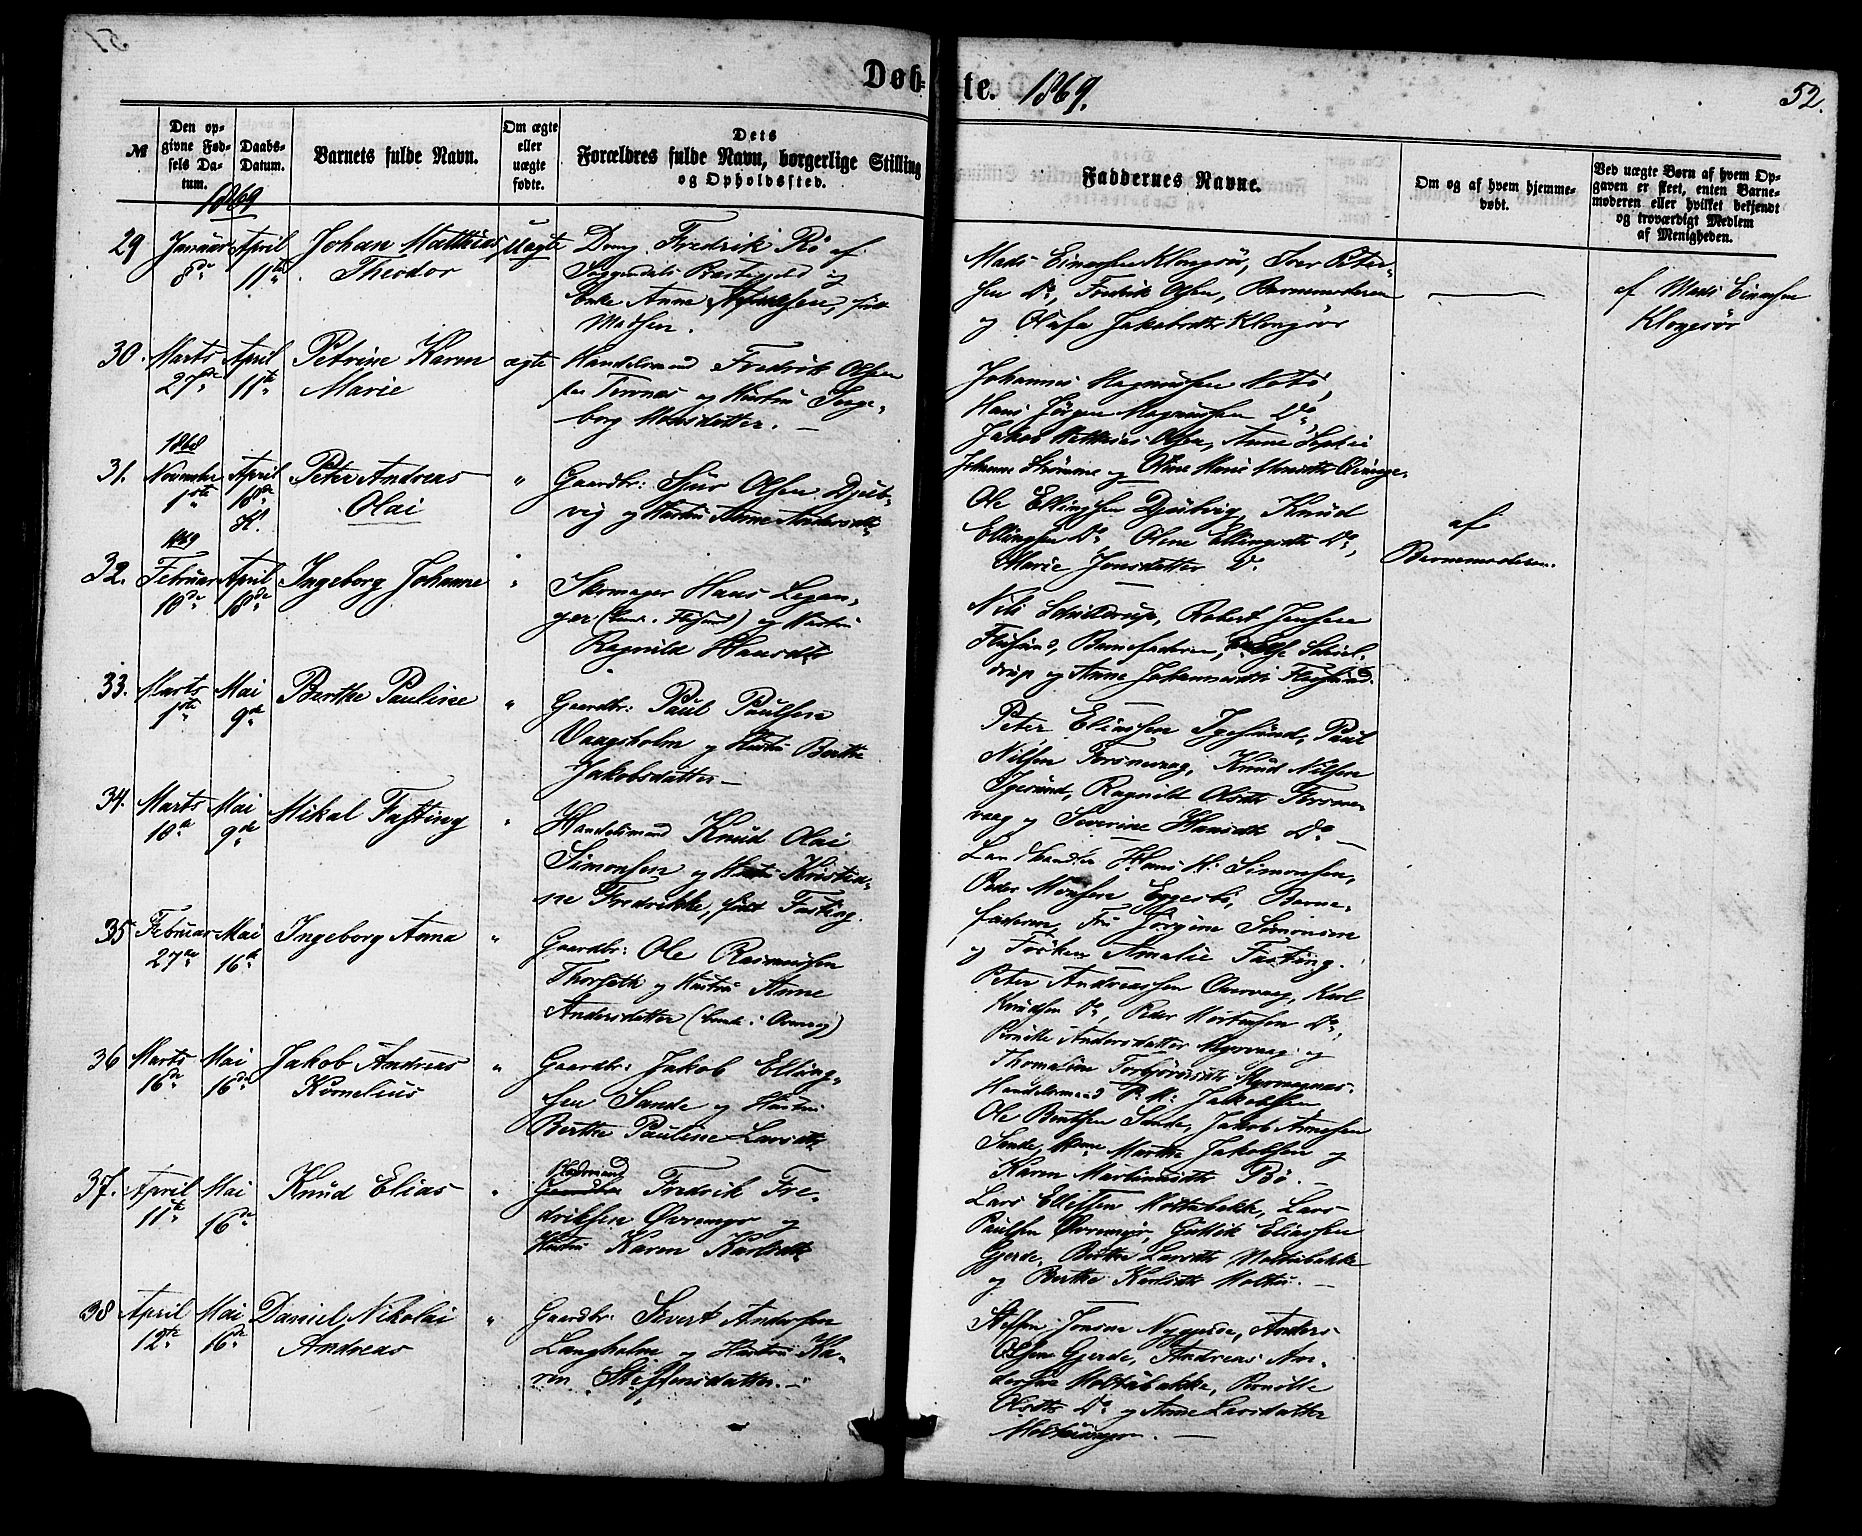 51
Døbte. 1869.
52.
№
Den opgivne Fødsels Datum.
Daabs-Datum.
Barnets fulde Navn.
Om ægte eller uægte fødte.
Dets Forældres fulde Navn, borgerlige Stilling og Opholdssted.
Faddernes Navne.
Om og af hvem hjemmedøbt.
Ved uægte Børn af hvem Opgaven er skeet, enten Barnemoderen eller hvilket bekjendt og troværdigt Medlem af Menigheden.
1869
29 Januar 8de April 11te
Johan Matthias
Theodor
Uægte
Dreng Fredrik Rö af
og
Enke Anne født
Madsen.
Mads Einarsen Klongsör, Iver Peter-
sen Do, Fredrik Olsen, Barnemoderen
og Olufa Jakobsdtr Klongsör
af Mads Einarsen
Klongsör
30. Marts 27de April 11te
Petrine Karen
Marie
ægte
Handelsmand Fredrik Olsen
og Hustru Inge-
borg Monsdatter. —
Johannes Magnussen
Hans Jörgen Magnussen Do,
Jakob Matthias Olsen, Anne Sophie
Johanne Strömme og Marie
1868
31. November 1ste April 18de K.
Peter Andreas
Olai
"
Gaardbr: Sjur Olsen Djub-
vig og Hustru Anne Andersdtr
Ole Ellingsen Djubvig, Knud
Ellingsen Do, Oline Ellingsdtr Do,
Marie Jonsdatter Do
af
Barnemoderen.
1869
32. Februar 10de April 18de
Ingeborg Johanne
"
Skomager Hans Legan-
ger og Hustru
Ragnild Hansdtr
Nils Schieldrup, Robert Jensen
Flusund, Barnefaderen, Schiel-
drup og Anne Johannesdtr Flusund.
33. Marts 1ste Mai 9de
Berthe Pauline
"
Gaardbr: Paul Paulsen
Vaagsholm og Hustru Berthe
Jakobsdatter —
Peter Eliassen Igesund, Paul
Nilsen Torsnevaag, Knud Nilsen
Igesund, Ragnild Olsdtr Torsne-
vaag og Severine Hansdtr Do —
34. Marts 10de Mai 9de
Mikal Fasting
"
Handelsmand Knud Olai
Simonsen og Hustru Kristia-
ne Fredrikke, født Fasting.
Landhandler Hans M. Simonsen,
Peder Monsen Eggesbö, Barne-
faderen, Fru Jörgine Simonsen
og Fröken Amalie Fasting.
35 Februar 27de Mai 16de
Ingeborg Anna
"
Gaardbr: Ole Rasmussen
Thorseth og Hustru Anne
Andersdatter
Peter Andreassen Overvaag, Karl
Knudsen Do, Peder Mortensen Do,
Pernille Andersdatter Myrvaag og
Thomaline Torbjörnsdtr
36 Marts 16de Mai 16de
Jakob Andreas
Kornelius
"
Gaardbr: Jakob Elling-
sen Sande og Hustru
Berthe Pauline Larsdtr
Handelsmand P. M. Jakobsen,
Ole Bentsen Sande, Jakob Arnesen
Sande, Marthe Jakobsen og
Karen Martinusdtr Bö. —
37. April 11te Mai 16de
Knud Elias
"
Husmand
Gaardbr Fredrik Fre-
driksen Øvremyr og
Hustru Karen Karlsdtr
Lars Ellefsen Moltubakke, Lars
Paulsen Øvremyr, Guttorm Eliassen
Gjerde, Berthe Larsdtr Moltubakke
og Berthe Karlsdtr Moltu. —
38 April 12te Mai 16de
Daniel Nikolai
Andreas
"
Gaardbr: Sivert Andersen
Langholm og Hustru Ka-
ren Steffensdatter. —
Steffen Jonsen Nygjerde, Anders
Olsen Gjerde, Andreas An-
dersen Moltubakke, Pernille
Olsdtr Do og Anne Larsdatter
—